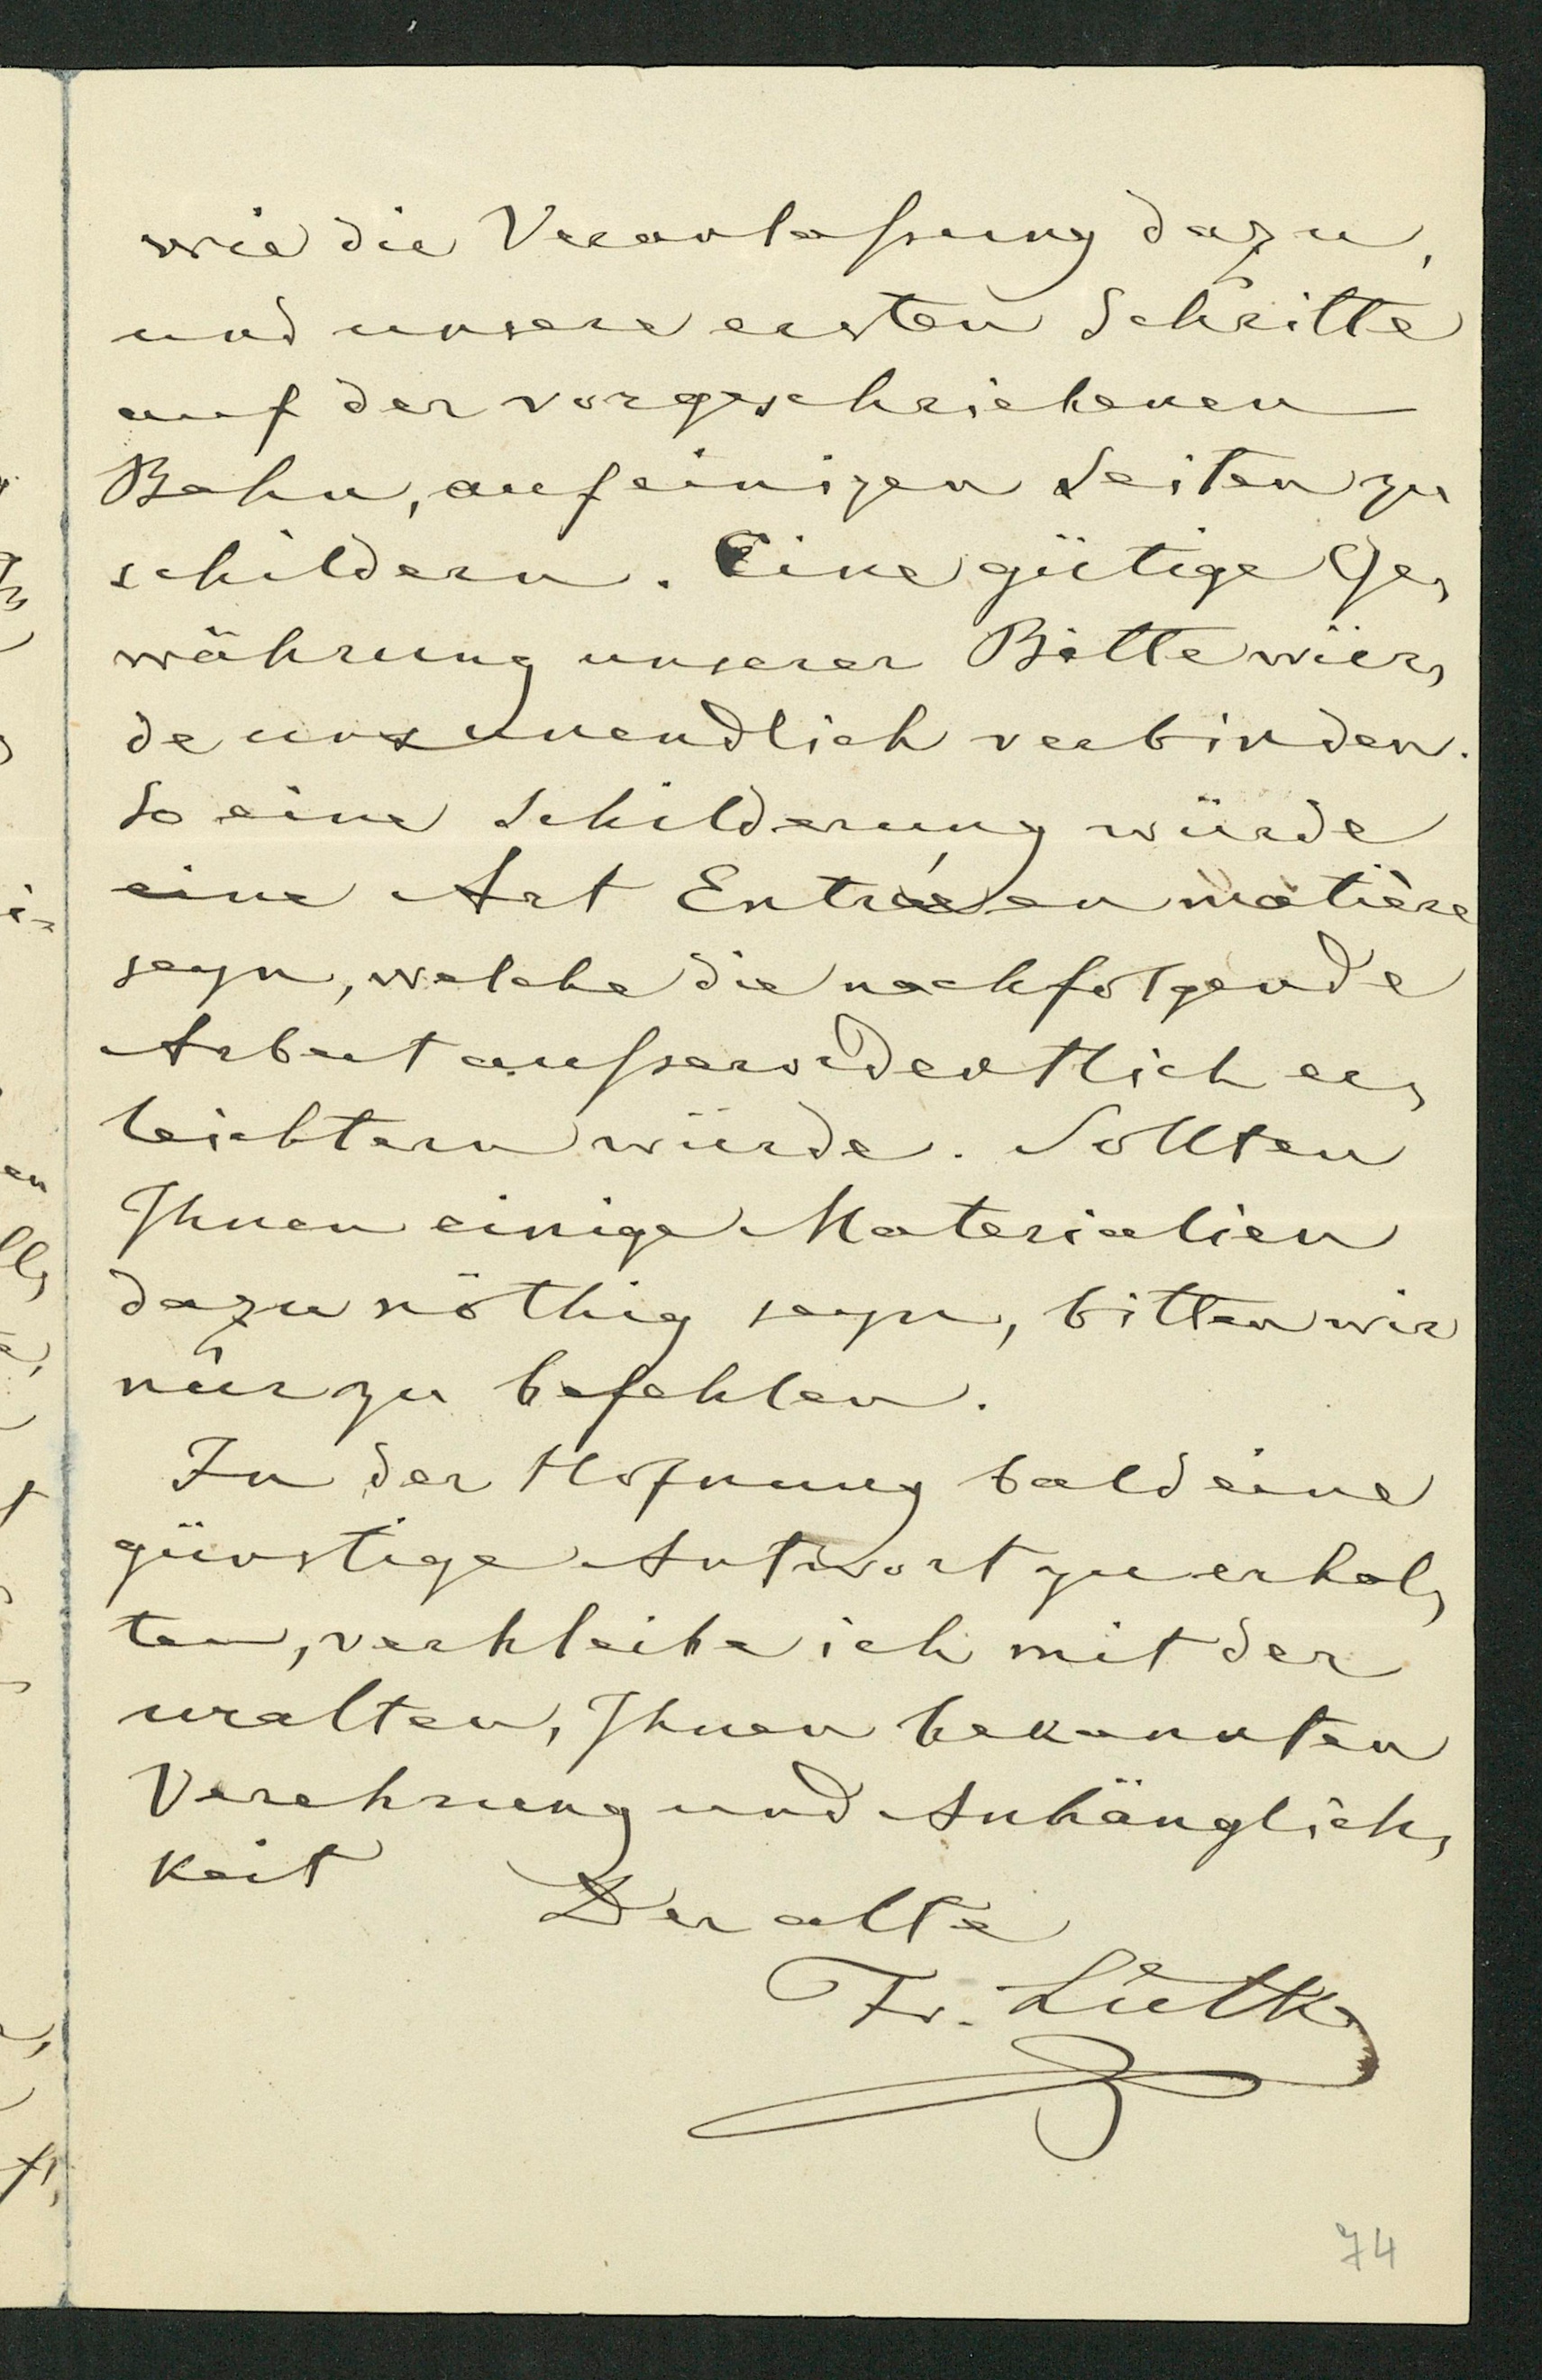 wie die Veranlaſsung dazu,
und unsere ersten Schritte
auf der vorgeschriebenen
Bahn, auf einigen Seiten zu
schildern. Eine gütige Ge,
währung unserer Bitte wür,
de uns unendlich verbinden.
So eine Schilderung würde
eine Art Entrée en matière
seyn, welche die nachfolgende
Arbeit auſserordentlich er,
leichtern würde. Sollten
Ihnen einige Materialien
dazu nöthig seyn, bitten wir
nur zu befehlen.
In der Hofnung bald eine
günstige Antwort zu erhal,
ten, verbleibe ich mit der
uralten, Ihnen bekannten
Verehrung und Anhänglich,
keit
Der alte
Fr. Lütke
74